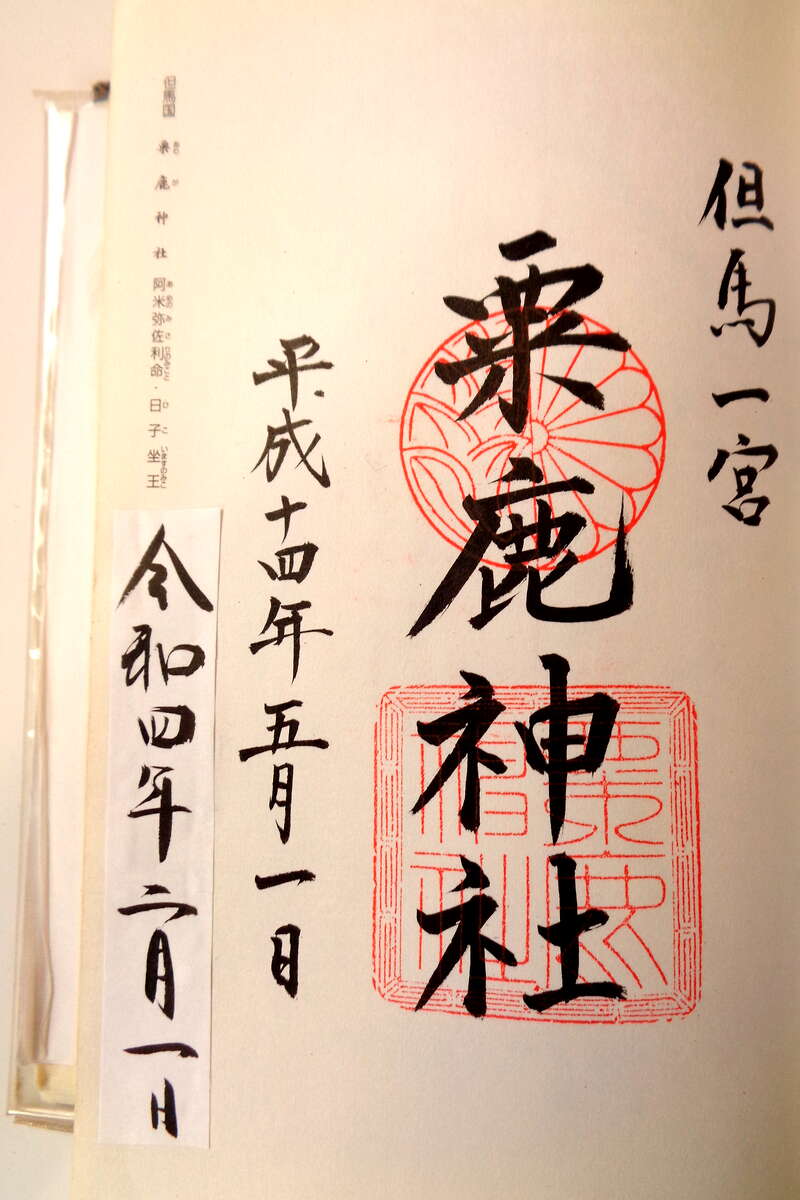 但馬一宮
粟鹿神社
平成十四年五月一日
令和四年二月一日
但馬国 粟鹿神社 阿米弥佐利命・日子坐王